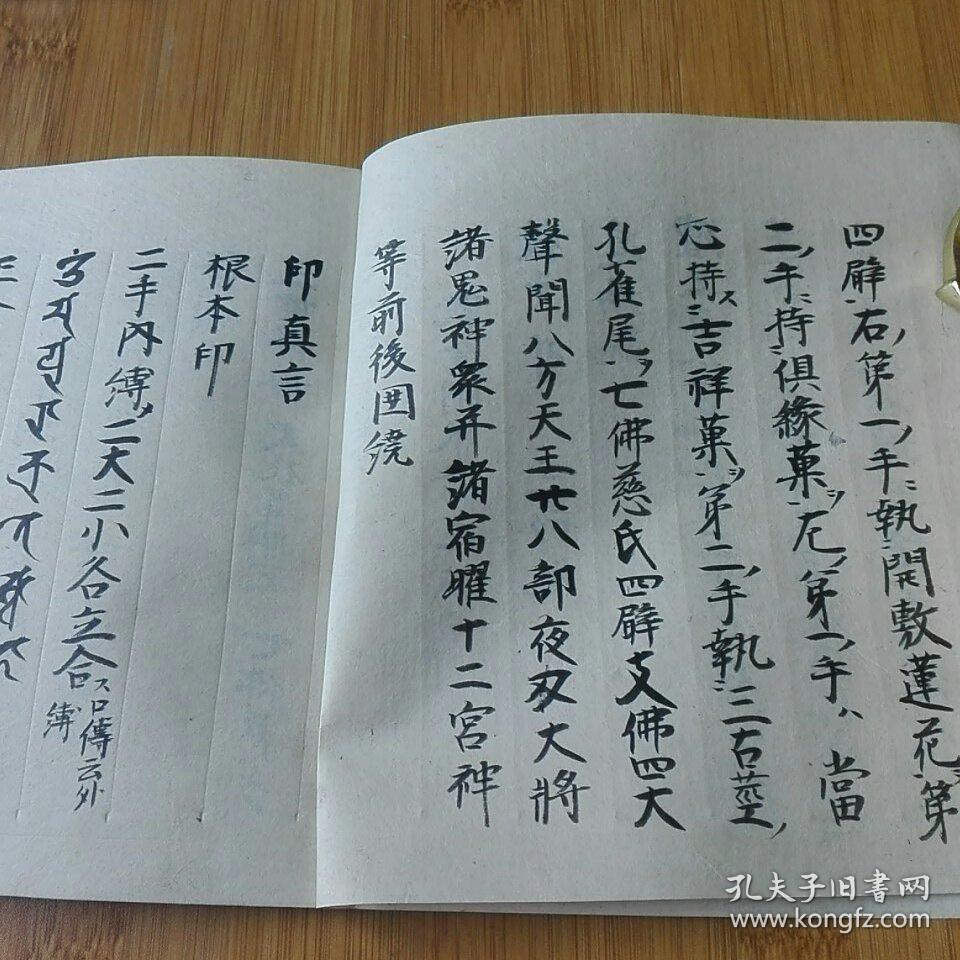 四臂右第一手執開敷蓮花第
二手持俱緣菓左第一手八當
心持吉祥菓第二手執三古莖
孔雀尾七佛慈氏四辟支佛四大
聲聞八方天王廿八部夜叉大將
諸鬼神衆并諸宿曜十二宮神
等前後囲繞
印真言
根本印
二手内縛二大二小各立合口傳云外
縛
孔夫子旧书网
www.kongfz.com